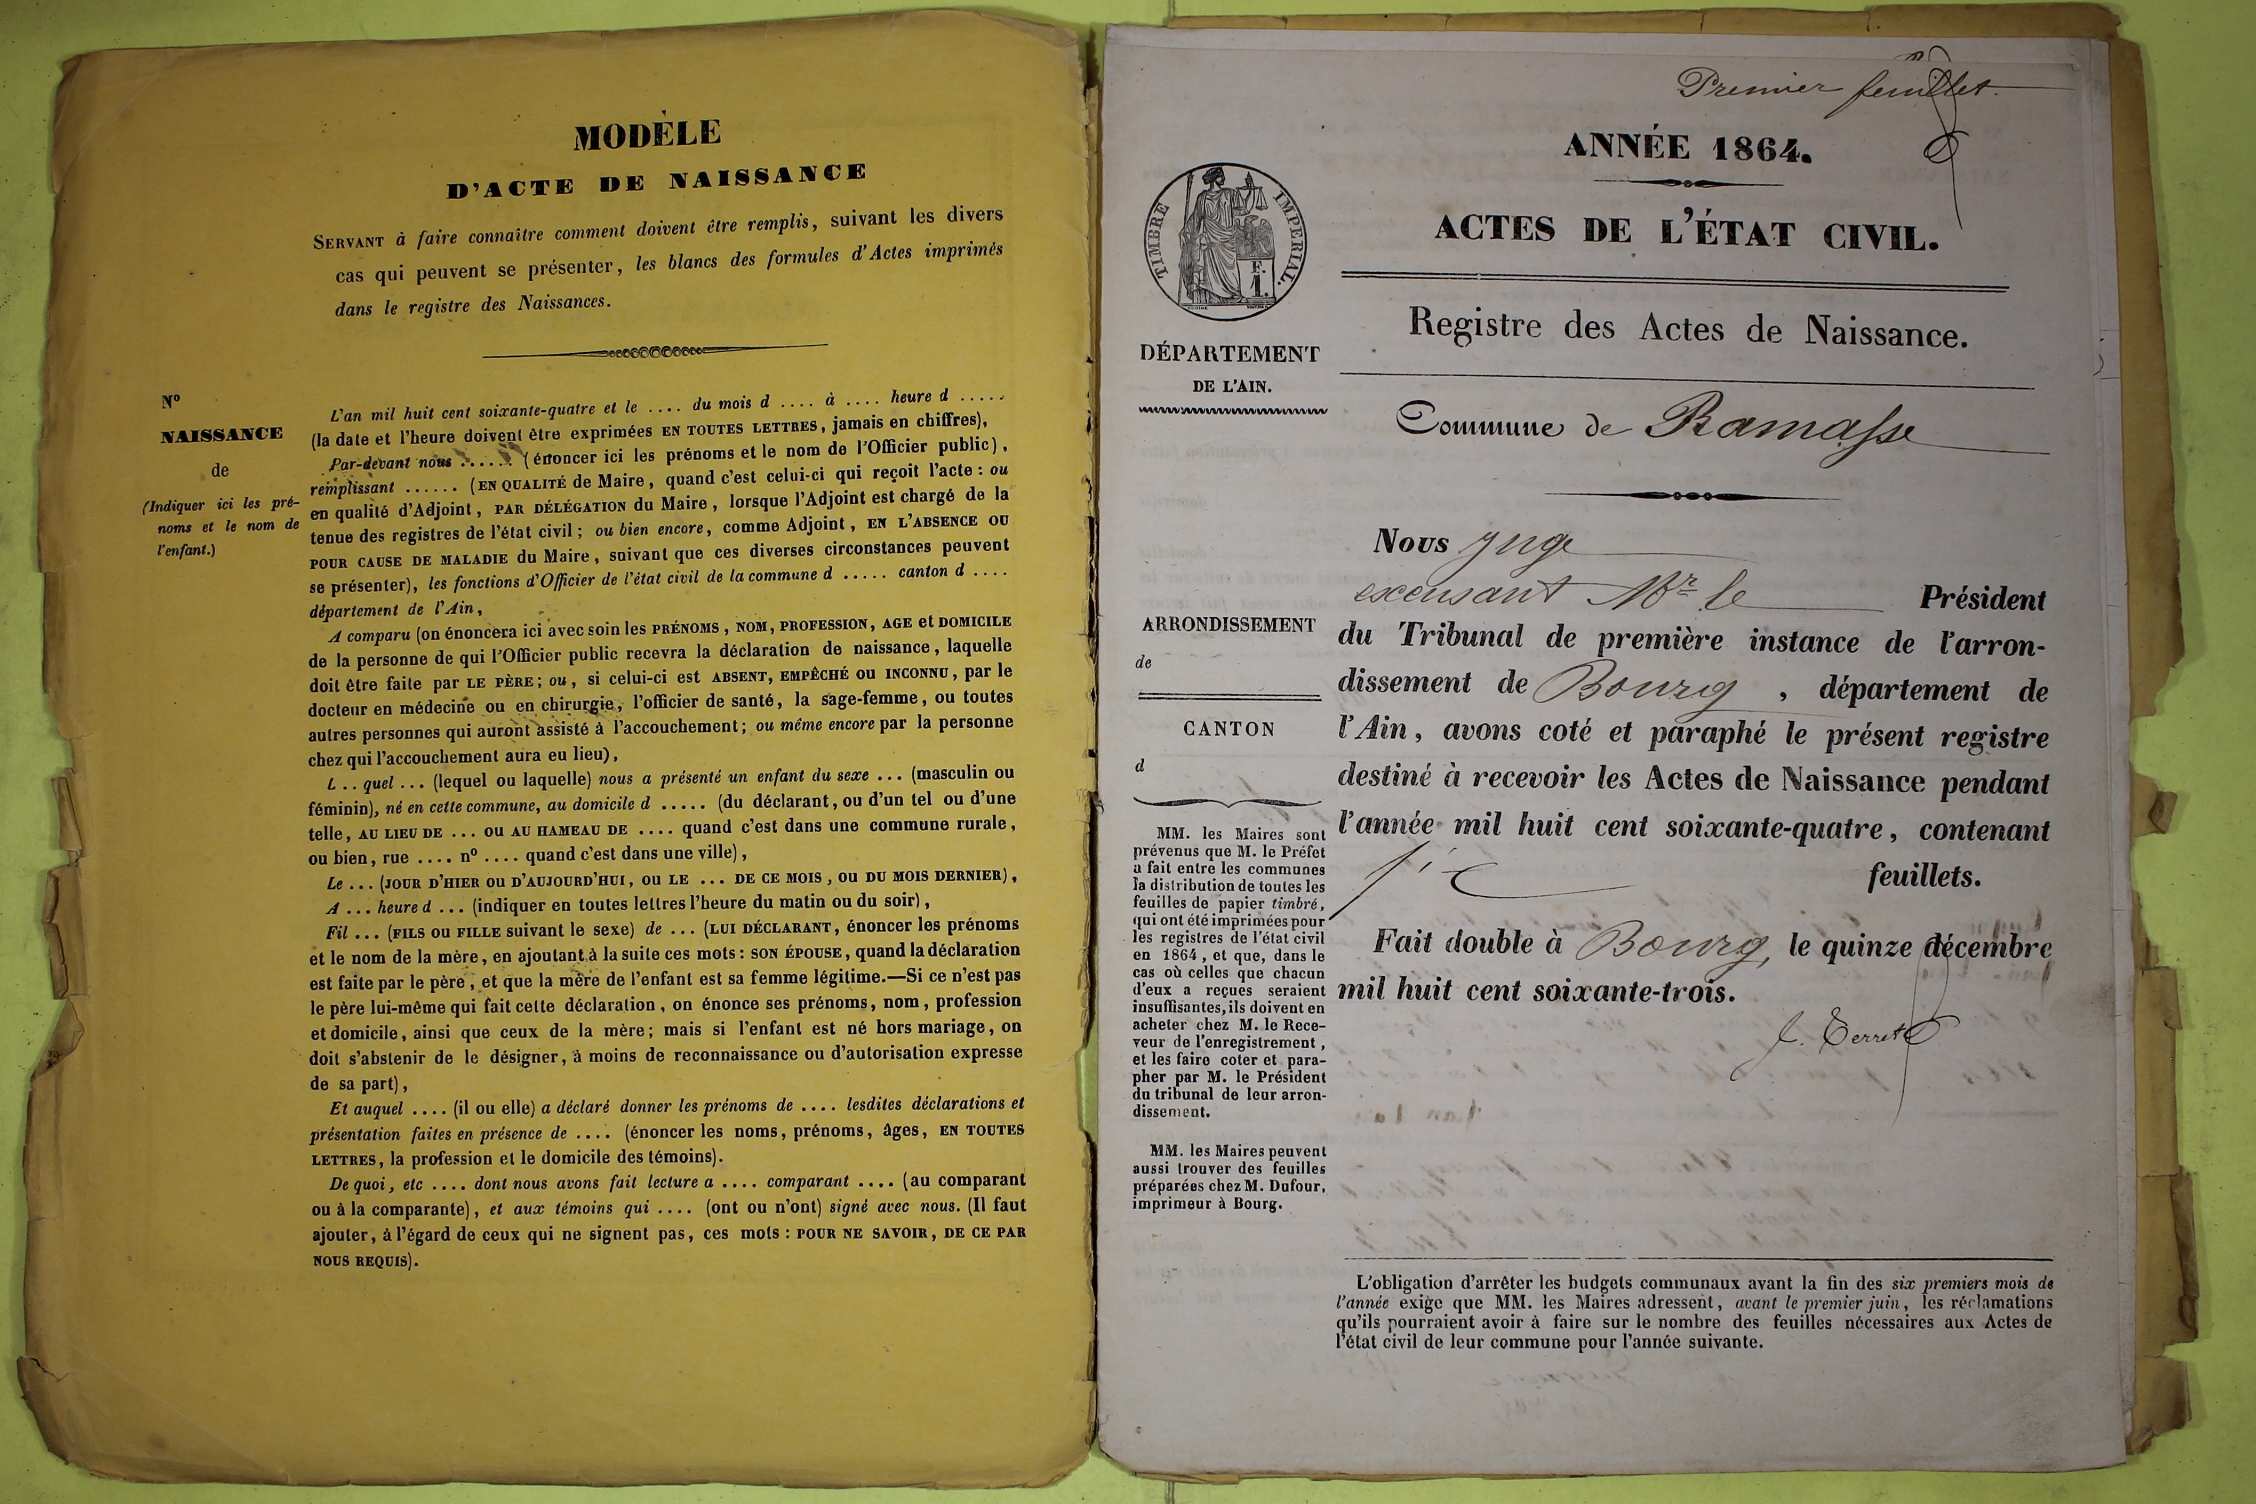 MODÈLE
D'ACTE DE NAISSANCE
SERVANT à faire connaître comment doivent être remplis, suivant les divers
cas qui peuvent se présenter, les blancs des formules d'Actes imprimés
dans le registre des Naissances.
N°
NAISSANCE
de
(Indiquer ici les pré-
noms et le nom de
l'enfant.)
L'an mil huit cent soixante-quatre et le .... du mois d .... à .... heure d .....
(la date et l'heure doivent être exprimées EN TOUTES LETTRES, jamais en chiffres),
Par-devant nous ...... (énoncer ici les prénoms et le nom de l'Officier public),
remplissant ...... (EN QUALITÉ de Maire, quand c'est celui-ci qui reçoit l'acte : ou
en qualité d'Adjoint, PAR DÉLÉGATION du Maire, lorsque l'Adjoint est chargé de la
tenue des registres de l'état civil ; ou bien encore, comme Adjoint, EN L'ABSENCE OU
POUR CAUSE DE MALADIE du Maire, suivant que ces diverses circonstances peuvent
se présenter), les fonctions d'Officier de l'état civil de la commune d ..... canton d ....
département de l'Ain,
A comparu (on énoncera ici avec soin les PRÉNOMS, NOM, PROFESSION, AGE et DOMICILE
de la personne de qui l'Officier public recevra la déclaration de naissance, laquelle
doit être faite par LE PÈRE ; ou, si celui-ci est ABSENT, EMPÊCHÉ OU INCONNU, par le
docteur en médecine ou en chirurgie, l'officier de santé, la sage-femme, ou toutes
autres personnes qui auront assisté à l'accouchement ; ou même encore par la personne
chez qui l'accouchement aura eu lieu),
L .. quel ... (lequel ou laquelle) nous a présenté un enfant du sexe ... (masculin ou
féminin), né en cette commune, au domicile d ..... (du déclarant, ou d'un tel ou d'une
telle, AU LIEU DE ... OU AU HAMEAU DE .... quand c'est dans une commune rurale,
ou bien, rue .... n° .... quand c'est dans une ville),
Le ... (JOUR D'HIER OU D'AUJOURD'HUI, OU LE ... DE CE MOIS, OU DU MOIS DERNIER),
A ... heure d ... (indiquer en toutes lettres l'heure du matin ou du soir),
Fil ... (FILS OU FILLE suivant le sexe) de ... (LUI DÉCLARANT, énoncer les prénoms
et le nom de la mère, en ajoutant à la suite ces mots : SON ÉPOUSE, quand la déclaration
est faite par le père, et que la mère de l'enfant est sa femme légitime.—Si ce n'est pas
le père lui-même qui fait cette déclaration, on énonce ses prénoms, nom, profession
et domicile, ainsi que ceux de la mère ; mais si l'enfant est né hors mariage, on
doit s'abstenir de le désigner, à moins de reconnaissance ou d'autorisation expresse
de sa part),
Et auquel .... (il ou elle) a déclaré donner les prénoms de .... lesdites déclarations et
présentation faites en présence de .... (énoncer les noms, prénoms, âges, EN TOUTES
LETTRES, la profession et le domicile des témoins).
De quoi, etc .... dont nous avons fait lecture a .... comparant .... (au comparant
ou à la comparante), et aux témoins qui .... (ont ou n'ont) signé avec nous. (Il faut
ajouter, à l'égard de ceux qui ne signent pas, ces mots : POUR NE SAVOIR, DE CE PAR
NOUS REQUIS).
Premier feuillet.
ANNÉE 1864.
ACTES DE L'ÉTAT CIVIL.
TIMBRE IMPÉRIAL.
F.
1.
Registre des Actes de Naissance.
DÉPARTEMENT
DE L'AIN.
Commune de Ramasse
ARRONDISSEMENT
de
CANTON
d
MM. les Maires sont
prévenus que M. le Préfet
a fait entre les communes
la distribution de toutes les
feuilles de papier timbré,
qui ont été imprimées pour
les registres de l'état civil
en 1864, et que, dans le
cas où celles que chacun
d'eux a reçues seraient
insuffisantes, ils doivent en
acheter chez M. le Rece-
veur de l'enregistrement,
et les faire coter et para-
pher par M. le Président
du tribunal de leur arron-
dissement.
MM. les Maires peuvent
aussi trouver des feuilles
préparées chez M. Dufour,
imprimeur à Bourg.
Nous juge
excusant Mr le Président
du Tribunal de première instance de l'arron-
dissement de Bourg, département de
l'Ain, avons coté et paraphé le présent registre
destiné à recevoir les Actes de Naissance pendant
l'année mil huit cent soixante-quatre, contenant
six feuillets.
Fait double à Bourg, le quinze décembre
mil huit cent soixante-trois.
L'obligation d'arrêter les budgets communaux avant la fin des six premiers mois de
l'année exige que MM. les Maires adressent, avant le premier juin, les réclamations
qu'ils pourraient avoir à faire sur le nombre des feuilles nécessaires aux Actes de
l'état civil de leur commune pour l'année suivante.